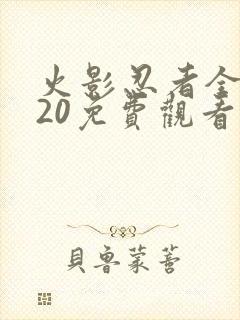 火影忍者全
20免費觀看
貝魯蒙薈